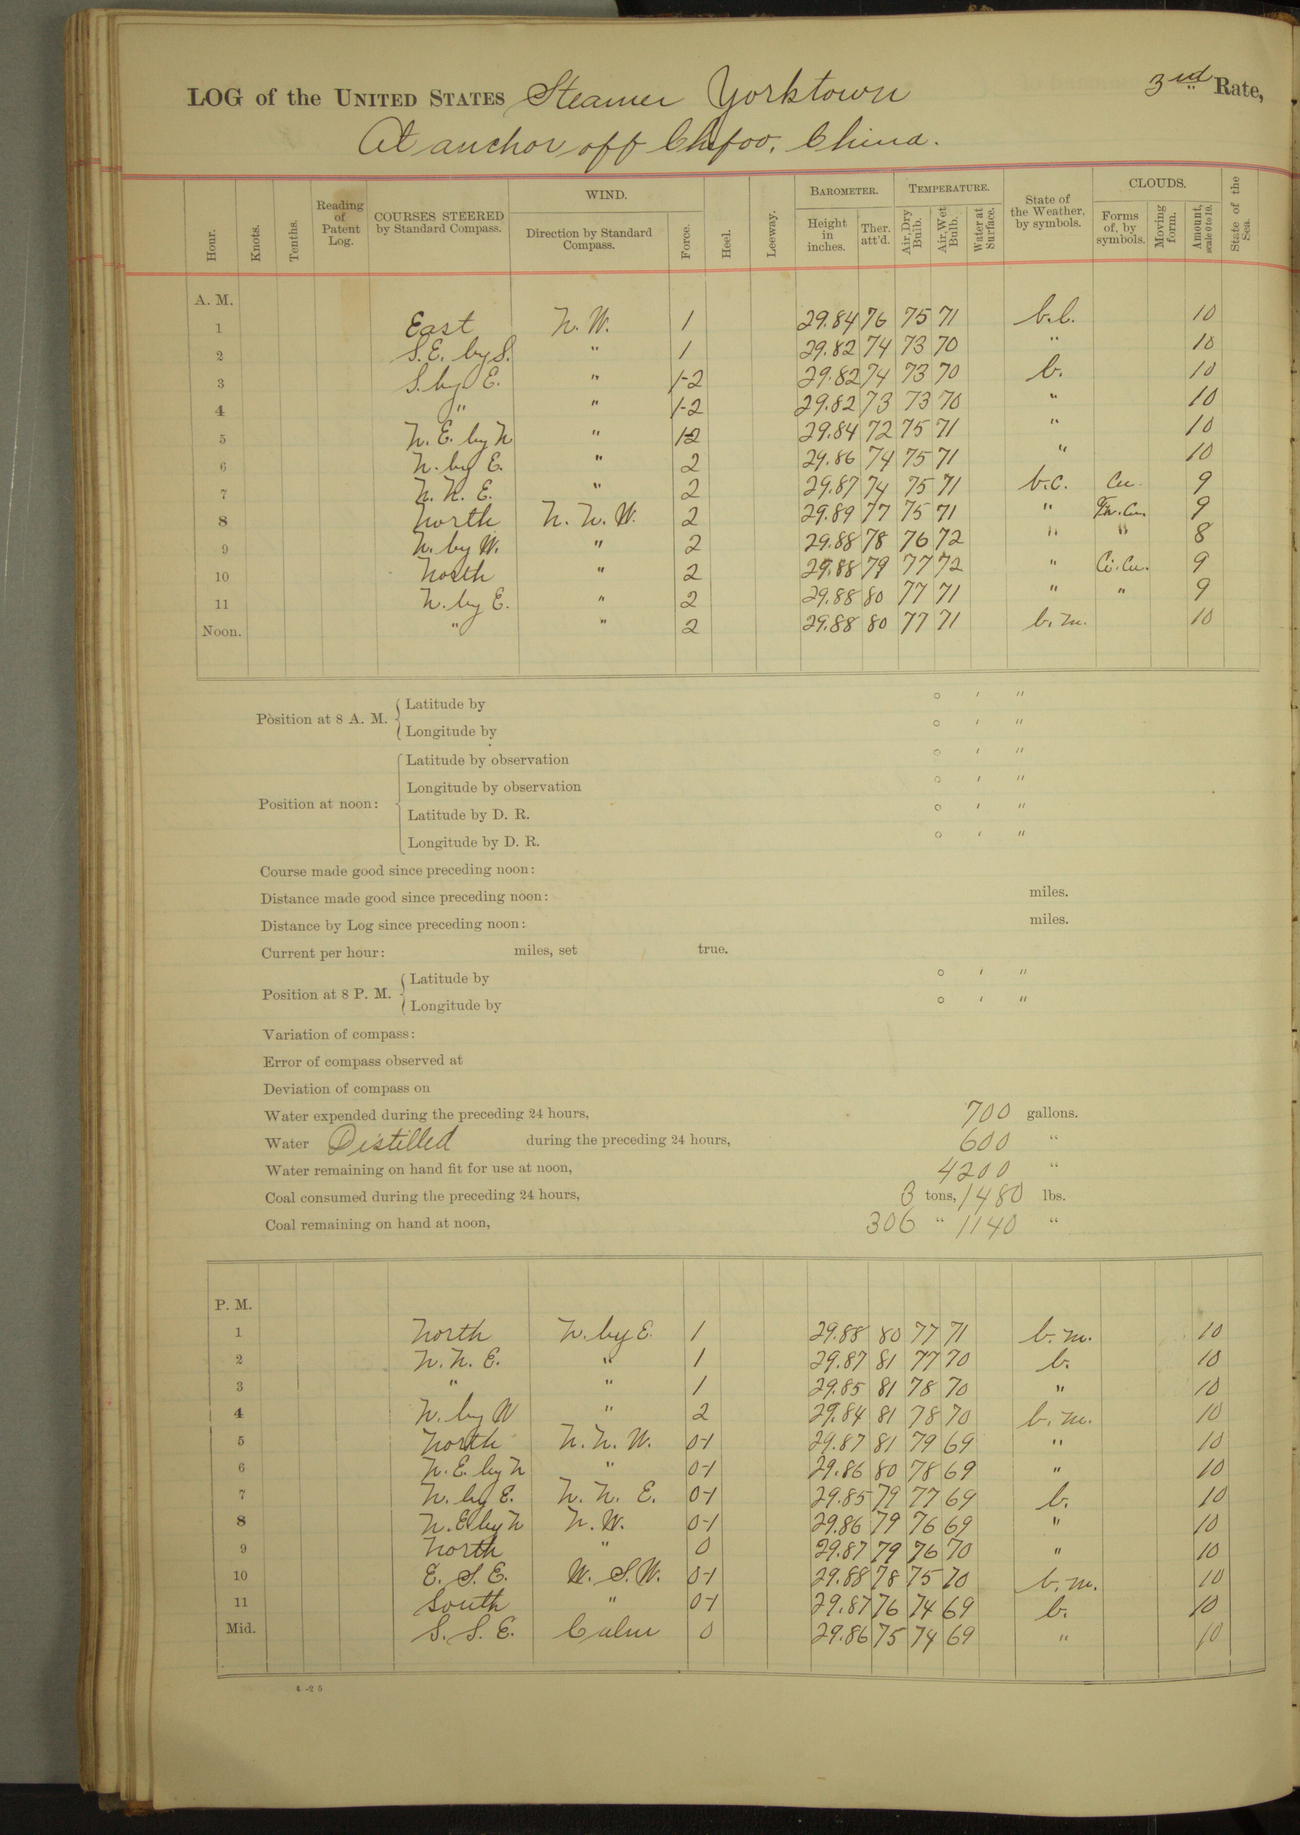 LOG of the UNITED STATES Steamer Yorktown 3rd Rate,
At anchor off Chefoo, China.
Hour. Knots. Tenths. Reading of Patent Log. COURSES STEERED by Standard Compass. WIND. Direction by Standard Compass. Force. Heel. Leeway. BAROMETER. Height in inches. Ther. att'd. TEMPERATURE. Air, Dry Bulb. Air, Wet Bulb. Water at Surface. State of the Weather, by symbols. CLOUDS. Forms of, by symbols. Moving form. Amount, scale 0 to 10. State of the Sea.
A. M.
1 East N. W. 1 29.84 76 75 71 10
2 S. E. by S. " 1 29.82 74 73 70 " 10
3 S. by E. " 1-2 29.82 74 73 70 b. 10
4 " " 1-2 29.82 73 73 70 " 10
5 N. E. by N " 1-2 29.84 72 75 71 " 10
6 N. by E. " 2 29.86 74 75 71 " 10
7 N. N. E. " 2 29.87 74 75 71 b.c. Cu. 9
8 North N. N. W. 2 29.89 77 75 71 " 9
9 N. by W. " 2 29.88 78 76 72 " " 8
10 North " 2 29.88 79 77 72 " Ci. Cu. 9
11 N. by E. " 2 29.88 80 77 71 " " 9
Noon. " " 2 29.88 80 77 71 b. m. 10
Position at 8 A. M. Latitude by ° ' "
Longitude by ° ' "
Position at noon: Latitude by observation ° ' "
Longitude by observation ° ' "
Latitude by D. R. ° ' "
Longitude by D. R. ° ' "
Course made good since preceding noon:
Distance made good since preceding noon: miles.
Distance by Log since preceding noon: miles.
Current per hour: miles, set true.
Position at 8 P. M. Latitude by ° ' "
Longitude by ° ' "
Variation of compass:
Error of compass observed at
Deviation of compass on
Water expended during the preceding 24 hours, 700 gallons.
Water Distilled during the preceding 24 hours, 600 "
Water remaining on hand fit for use at noon, 4200 "
Coal consumed during the preceding 24 hours, 3 tons, 1480 lbs.
Coal remaining on hand at noon, 306 " 1140 "
P. M.
1 North N. by E. 1 29.88 80 77 71 b. m. 10
2 N. N. E. " 1 29.87 81 77 70 b. 10
3 " " 1 29.85 81 78 70 " 10
4 N. by W " 2 29.84 81 78 70 b. m. 10
5 North N. N. W. 0-1 29.87 81 79 69 " 10
6 N. E. by N " 0-1 29.86 80 78 69 " 10
7 N. by E. N. N. E. 0-1 29.85 79 77 69 b. 10
8 N. E by N N. W. 0-1 29.86 79 76 69 " 10
9 North " 0 29.87 79 76 70 " 10
10 E. S. E. W. S. W. 0-1 29.88 78 75 70 b. m. 10
11 South " 0-1 29.87 76 74 69 b. 10
Mid. S. S. E. Calm 0 29.86 75 74 69 " 10
4-25